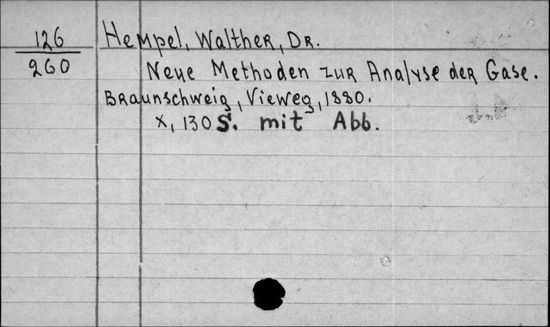 126
260
Hempel, Walther, Dr.
Neue Methoden zur Analyse der Gase.
Braunschweig, Vieweg, 1880.
X, 130 S. mit Abb.